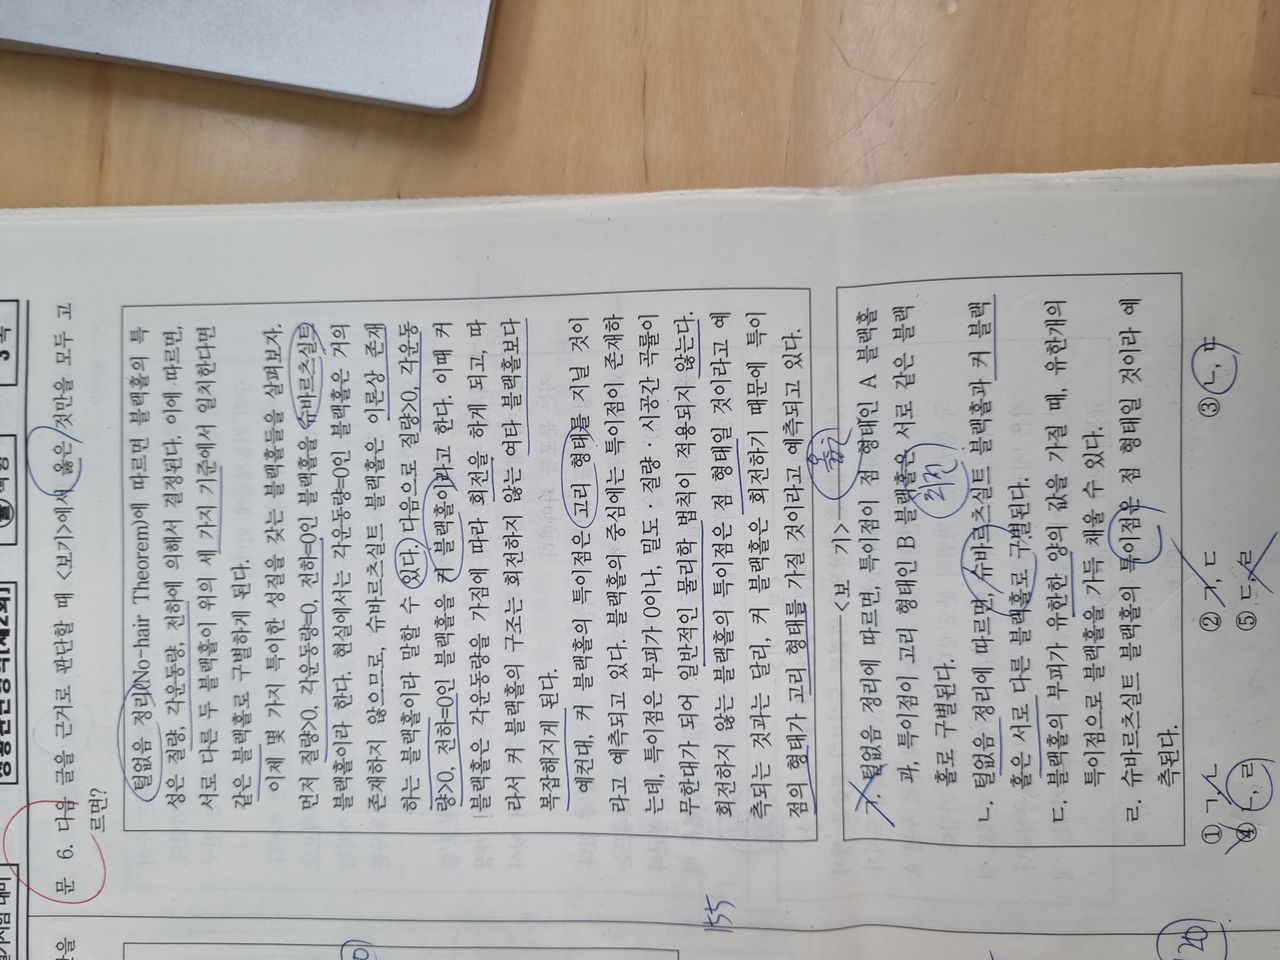 문 6. 다음 글을 근거로 판단할 때 <보기>에서 옳은 것만을 모두 고
르면?
털없음 정리(No-hair Theorem)에 따르면 블랙홀의 특
성은 질량, 각운동량, 전하에 의해서 결정된다. 이에 따르면,
서로 다른 두 블랙홀이 위의 세 가지 기준에서 일치한다면
같은 블랙홀로 구별하게 된다.
이제 몇 가지 특이한 성질을 갖는 블랙홀들을 살펴보자.
먼저 질량>0, 각운동량=0, 전하=0인 블랙홀을 슈바르츠실트
블랙홀이라 한다. 현실에서는 각운동량=0인 블랙홀은 거의
존재하지 않으므로, 슈바르츠실트 블랙홀은 이론상 존재
하는 블랙홀이라 말할 수 있다. 다음으로 질량>0, 각운동
량>0, 전하=0인 블랙홀을 커 블랙홀이라고 한다. 이때 커
블랙홀은 각운동량을 가짐에 따라 회전을 하게 되고, 따
라서 커 블랙홀의 구조는 회전하지 않는 여타 블랙홀보다
복잡해지게 된다.
예컨대, 커 블랙홀의 특이점은 고리 형태를 지닐 것이
라고 예측되고 있다. 블랙홀의 중심에는 특이점이 존재하
는데, 특이점은 부피가 0이나, 밀도·질량·시공간 곡률이
무한대가 되어 일반적인 물리학 법칙이 적용되지 않는다.
회전하지 않는 블랙홀의 특이점은 점 형태일 것이라고 예
측되는 것과는 달리, 커 블랙홀은 회전하기 때문에 특이
점의 형태가 고리 형태를 가질 것이라고 예측되고 있다.
<보 기>
ㄱ. 털없음 정리에 따르면, 특이점이 점 형태인 A 블랙홀
과, 특이점이 고리 형태인 B 블랙홀은 서로 같은 블랙
홀로 구별된다.
회전
ㄴ. 털없음 정리에 따르면, 슈바르츠실트 블랙홀과 커 블랙
홀은 서로 다른 블랙홀로 구별된다.
ㄷ. 블랙홀의 부피가 유한한 양의 값을 가질 때, 유한개의
특이점으로 블랙홀을 가득 채울 수 있다.
ㄹ. 슈바르츠실트 블랙홀의 특이점은 점 형태일 것이라 예
측된다.
① ㄱ, ㄴ
② ㄱ, ㄷ
③ ㄴ, ㄷ
④ ㄴ, ㄹ
⑤ ㄷ, ㄹ
155
20